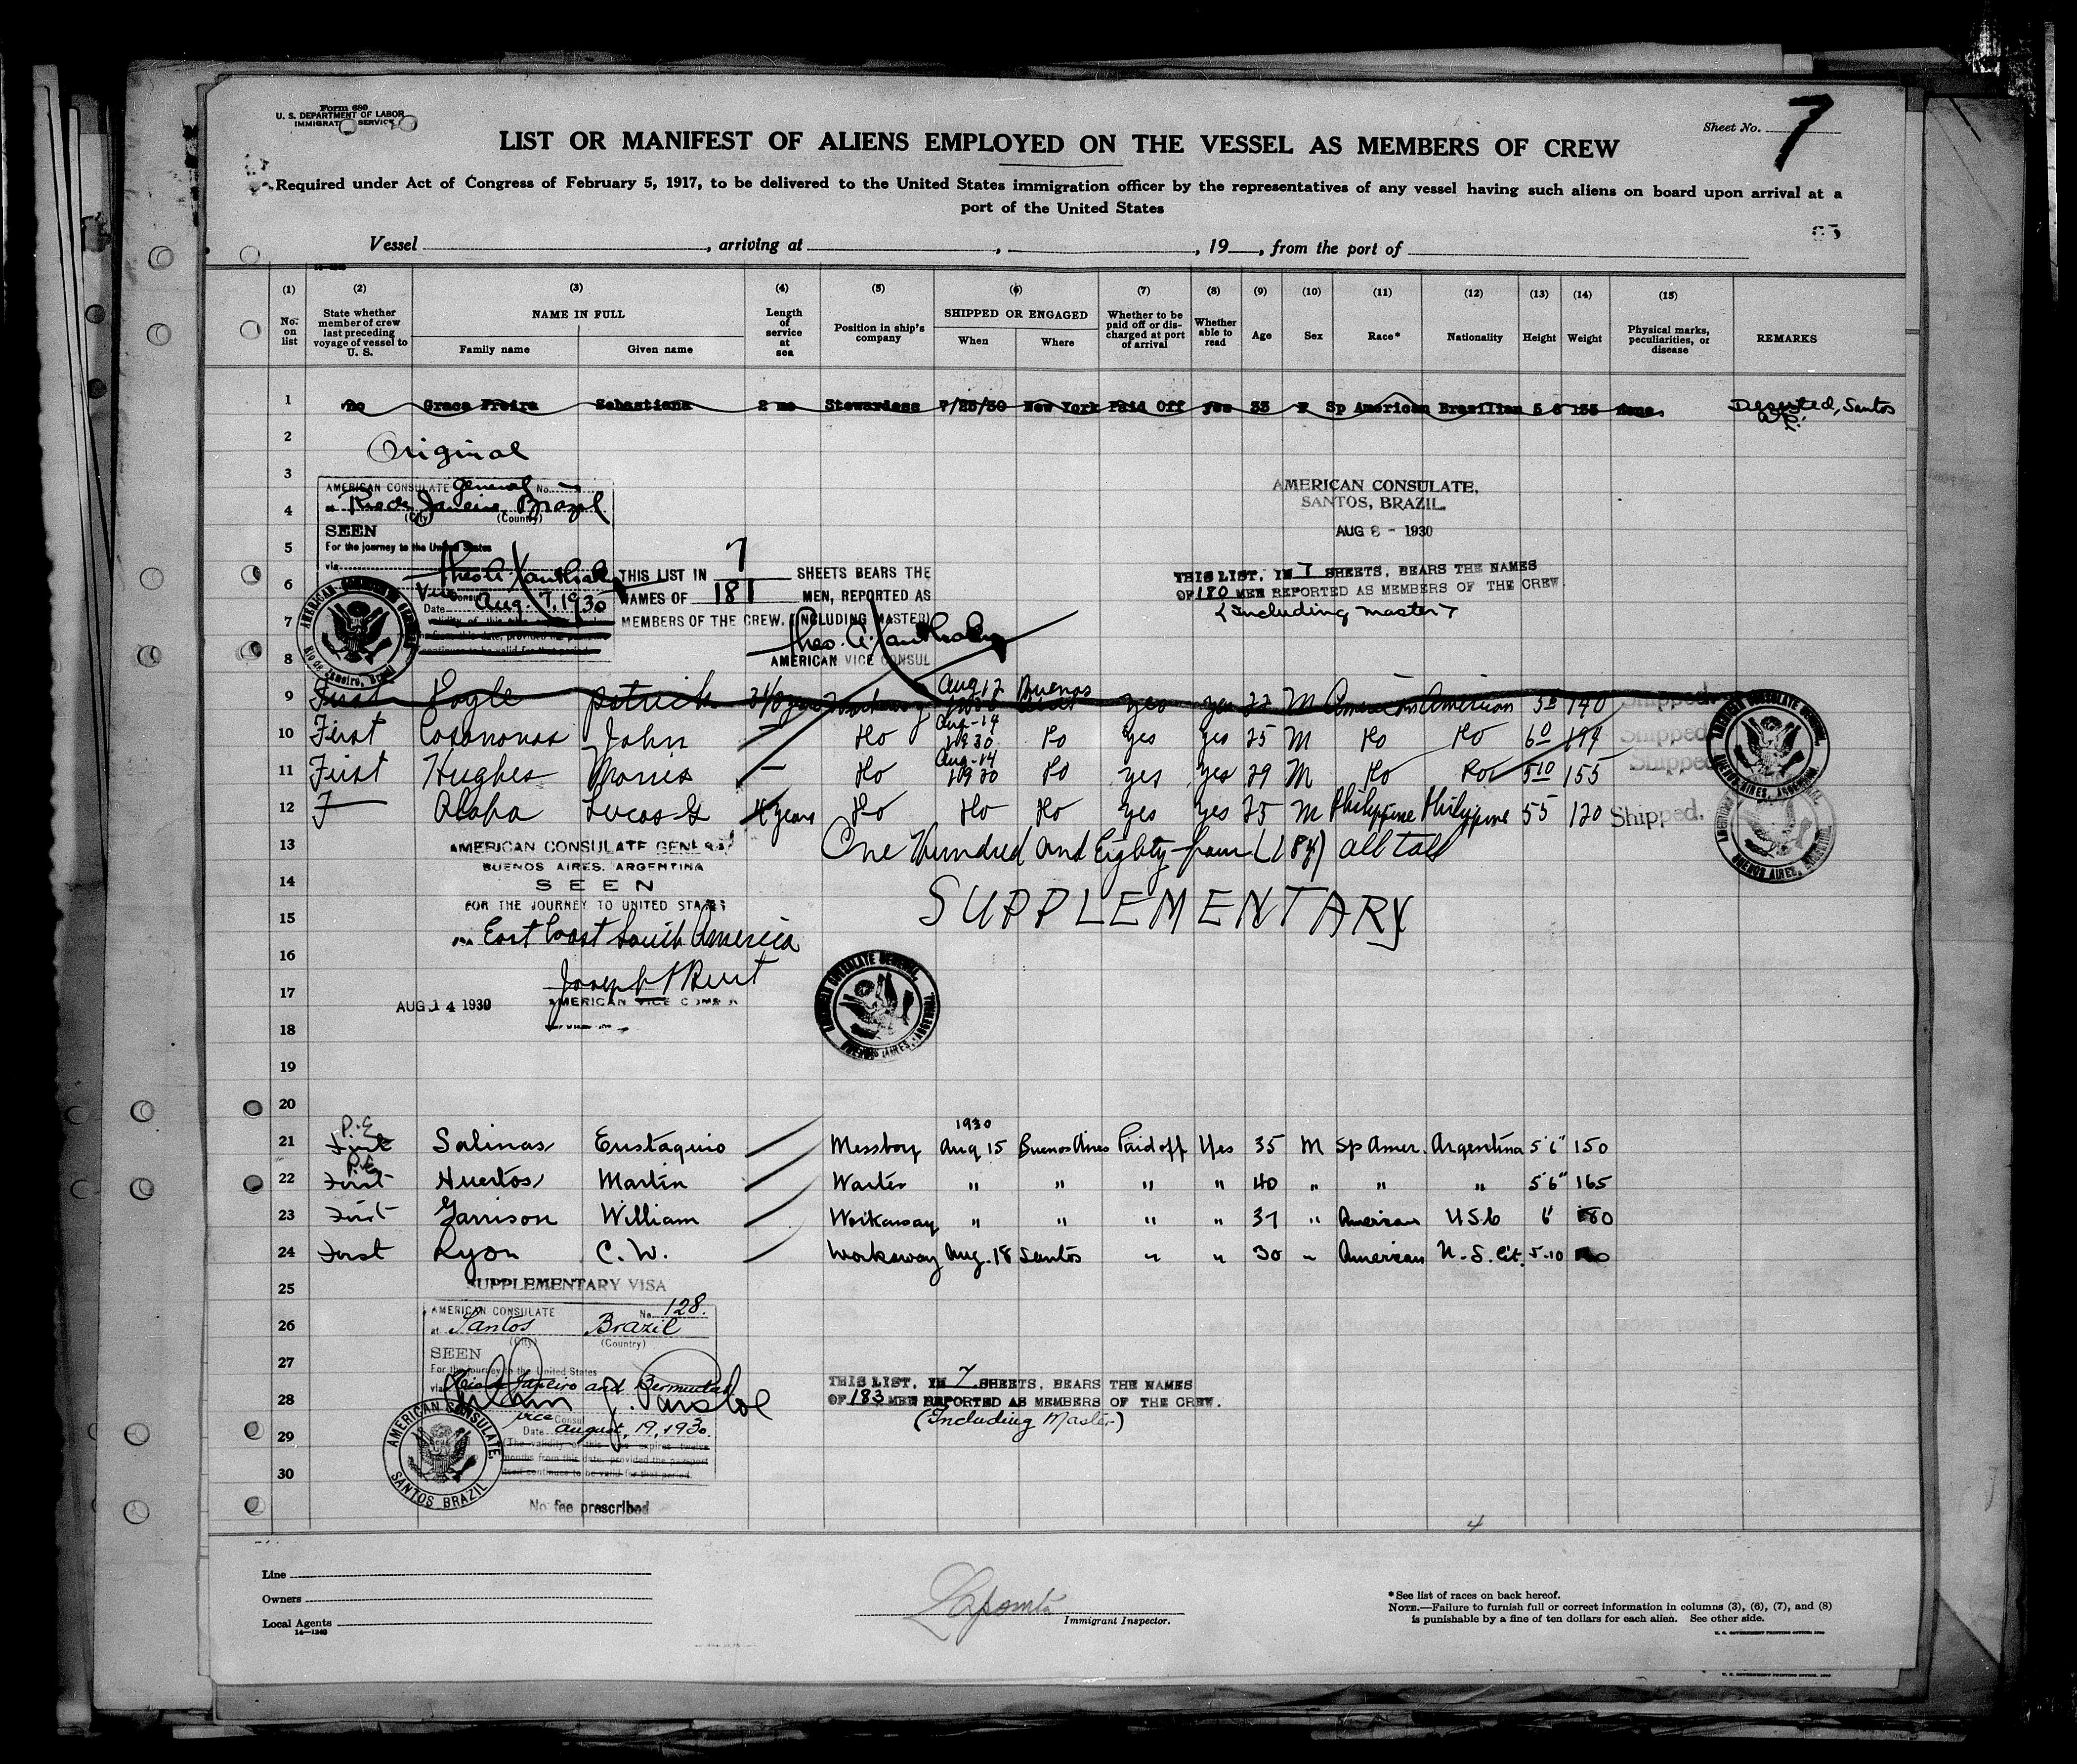 Form 680
U. S. DEPARTMENT OF LABOR
IMMIGRATION SERVICE
Sheet No. 7
LIST OR MANIFEST OF ALIENS EMPLOYED ON THE VESSEL AS MEMBERS OF CREW
Required under Act of Congress of February 5, 1917, to be delivered to the United States immigration officer by the representatives of any vessel having such aliens on board upon arrival at a
port of the United States
Vessel , arriving at , , 19 , from the port of
(1) (2) (3) (4) (5) (6) (7) (8) (9) (10) (11) (12) (13) (14) (15)
No. on list
State whether member of crew last preceding voyage of vessel to U. S.
NAME IN FULL
Family name Given name
Length of service at sea
Position in ship's company
SHIPPED OR ENGAGED
When Where
Whether to be paid off or discharged at port of arrival
Whether able to read
Age Sex Race* Nationality Height Weight
Physical marks, peculiarities, or disease
REMARKS
1 no Graca Freire Sebastiana 2 mo Stewardess 7/25/30 New York Paid Off yes 33 F Sp American Brazilian 5 6 135 None Deserted, Santos
2 Original
3
AMERICAN CONSULATE General No.
4 at Rio de Janeiro Brazil
(City) (Country)
SEEN
5 For the journey to the United States
via
6 Theo. A. Xanthaky
Vice Consul
Date Aug. 7, 1930
7
8
THIS LIST IN 7 SHEETS BEARS THE
NAMES OF 181 MEN, REPORTED AS
MEMBERS OF THE CREW. (INCLUDING MASTER)
Theo. A. Xanthaky
AMERICAN VICE CONSUL
AMERICAN CONSULATE GENERAL
Rio de Janeiro, Brazil
AMERICAN CONSULATE,
SANTOS, BRAZIL.
AUG 8 - 1930
THIS LIST, IN 7 SHEETS, BEARS THE NAMES
OF 180 MEN REPORTED AS MEMBERS OF THE CREW
(Including master)
9 First Patrick Aug 12 Buenos yes yes 22 M American American 140 Shipped.
10 First Casanovas John — Do Aug-14 1930 Do yes yes 25 M Do Do 6 0 Shipped
11 First Hughes Morris — Do Aug-14 1930 Do yes yes 29 M Do Do 5 10 155 Shipped
12 F— Alaha Lucas G 4 years Do Do Do yes yes 25 M Philippine Philippine 5 5 120 Shipped.
13 One Hundred and Eighty-four (184) all told
AMERICAN CONSULATE GENERAL
BUENOS AIRES, ARGENTINA
14 SEEN
SUPPLEMENTARY
FOR THE JOURNEY TO UNITED STATES
15 via East Coast South America
16
17 AUG 14 1930 AMERICAN VICE CONSUL
AMERICAN CONSULATE GENERAL,
BUENOS AIRES, ARGENTINA.
18
19
20
1930
21 P.E. First Salinas Eustaquio Messboy Aug 15 Buenos Aires Paid off Yes 35 M Sp Amer. Argentina 5'6" 150
22 P.E. First Huertos Martin Waiter " " " " 40 " " " 5'6" 165
23 First Garrison William Workaway " " " " 37 " American USC 6' 180
24 First Ryon C. W. Workaway Aug. 18 Santos " " 30 " American U.S. Cit. 5-10
25 SUPPLEMENTARY VISA
AMERICAN CONSULATE No. 128.
26 at Santos Brazil
(City) (Country)
SEEN
27 For the journey to the United States
via Rio de Janeiro and Bermuda
28
vice Consul
Date August, 19, 1930.
29 (The validity of this visa expires twelve
months from this date, provided the passport
30 itself continues to be valid for that period.
AMERICAN CONSULATE,
SANTOS BRAZIL
No fee prescribed
THIS LIST, IN 7 SHEETS, BEARS THE NAMES
OF 183 MEN REPORTED AS MEMBERS OF THE CREW.
(Including Master)
4
Line
Owners
Local Agents
14—1240
Immigrant Inspector.
*See list of races on back hereof.
NOTE.—Failure to furnish full or correct information in columns (3), (6), (7), and (8)
is punishable by a fine of ten dollars for each alien. See other side.